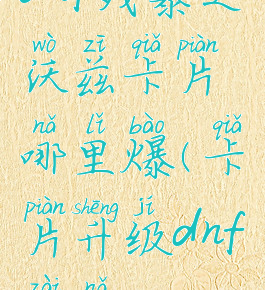 wò zī qiǎ piàn
沃兹卡片
nǎ lǐ bào qiǎ
哪里爆(卡
piàn shēng jí
片升级dnf
zài nǎ